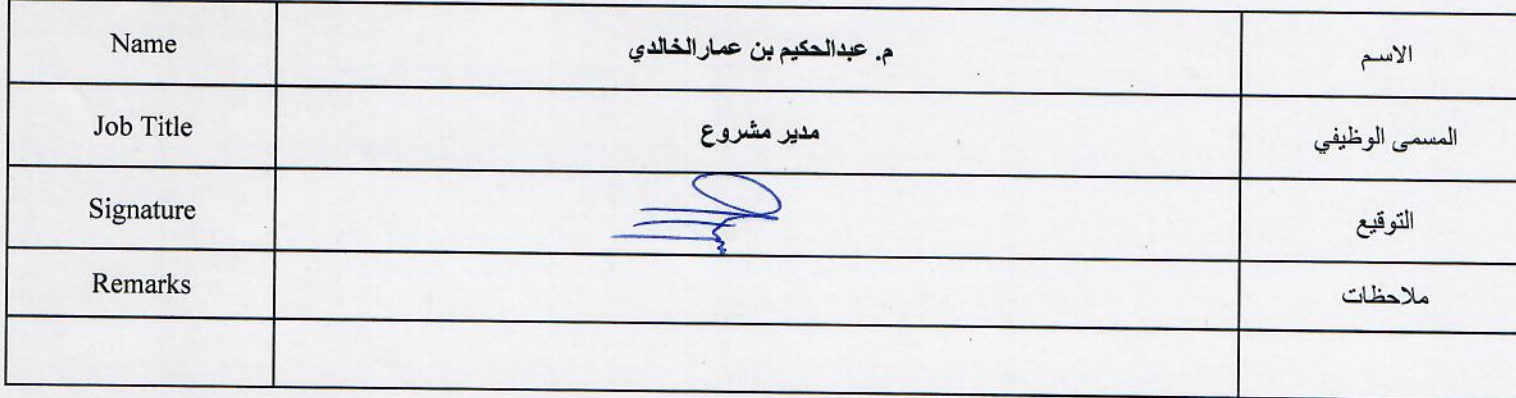 Name م. عبدالحكيم بن عمارالخالدي الاسم
Job Title مدير مشروع المسمى الوظيفي
Signature التوقيع
Remarks ملاحظات